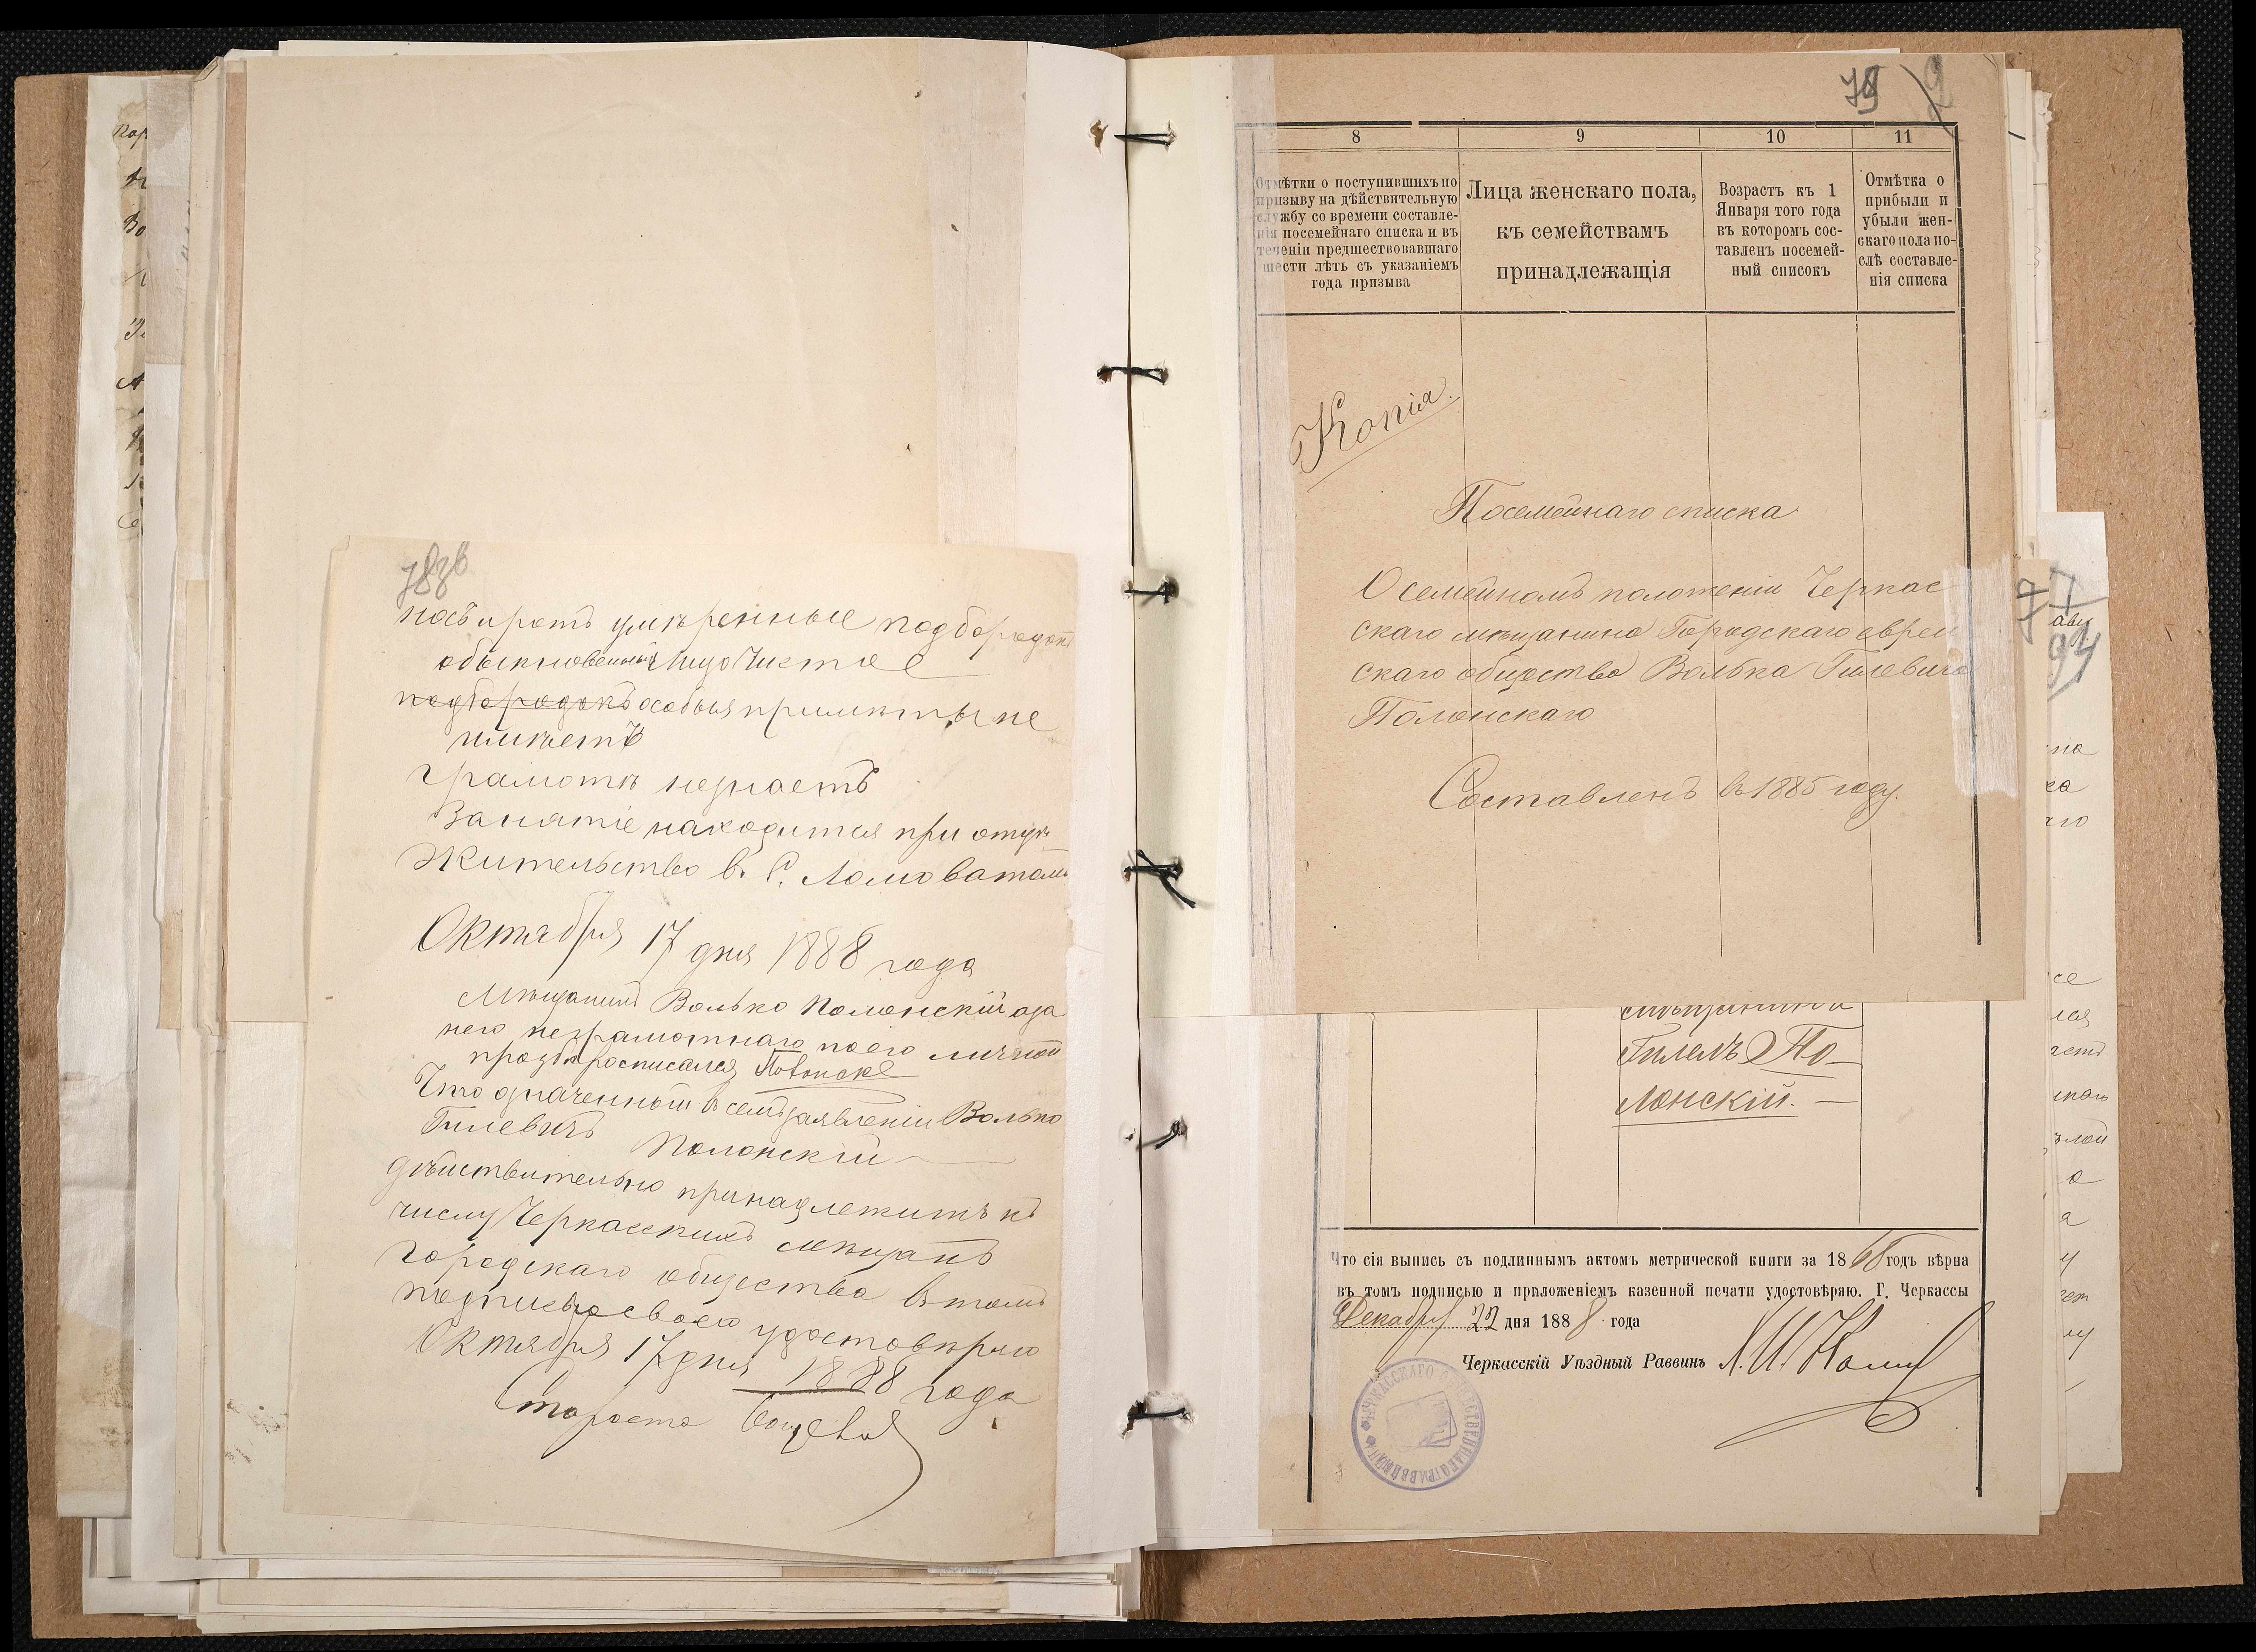 78 об
носъ и ротъ умѣренные подбородокъ
обыкновенный лицо чистое
подбородокъ особыя примѣты не
имѣетъ
грамоты незнаетъ
Занятіе находится при отцѣ
Жительство в. С. Ломоватомъ
Октября 17 дня 1888 года
Мѣщанинъ Волько Полонскій а за
него неграмотнаго по его личной
прозбѣ росписался
Что означенный въ семъ заявленіи Волько
Гилевичъ Полонскій
дѣйствительно принадлежитъ къ
числу Черкасскихъ мѣщанъ
городскаго общества въ томъ
подписью своею удостовѣряю
Октября 17 дня 1888 года
Староста
79
8 9 10 11
Отмѣтки о поступившихъ по
призыву на дѣйствительную
службу со времени составле-
нія посемейнаго списка и въ
теченіи предшествовавшаго
шести лѣтъ съ указаніемъ
года призыва
Лица женскаго пола,
къ семействамъ
принадлежащія
Возрастъ къ 1
Января того года
въ которомъ сос-
тавленъ посемей-
ный списокъ
Отмѣтка о
прибыли и
убыли жен-
скаго пола по-
слѣ составле-
нія списка
Копія.
Посемейнаго списка
О семейномъ положеніи Черкас
скаго мѣщанина Городскаго еврей
скаго общества Волька Гилевича
Полонскаго
Составленъ въ 1885 году.
Гилель По-
лонскій.
Что сія выпись съ подлиннымъ актомъ метрической книги за 1868 годъ вѣрна
въ томъ подписью и приложеніемъ казенной печати удостовѣряю. Г. Черкассы
Декабря 22 дня 1888 года
Черкасскій Уѣздный Раввинъ
77
94